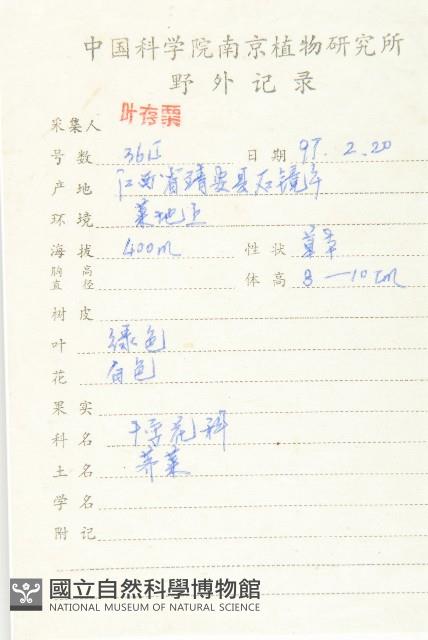 中国科学院南京植物研究所
野外记录
采集人 叶存粟
号数 日期 97.2.20
产地 江西省靖安县石镜
环境 菜地上
海拔 400m 性状 草
胸高直径 体高 3—10cm
树皮
叶 绿色
花 白色
果实
科名 十字花科
土名 荠菜
学名
附记
國立自然科學博物館
NATIONAL MUSEUM OF NATURAL SCIENCE